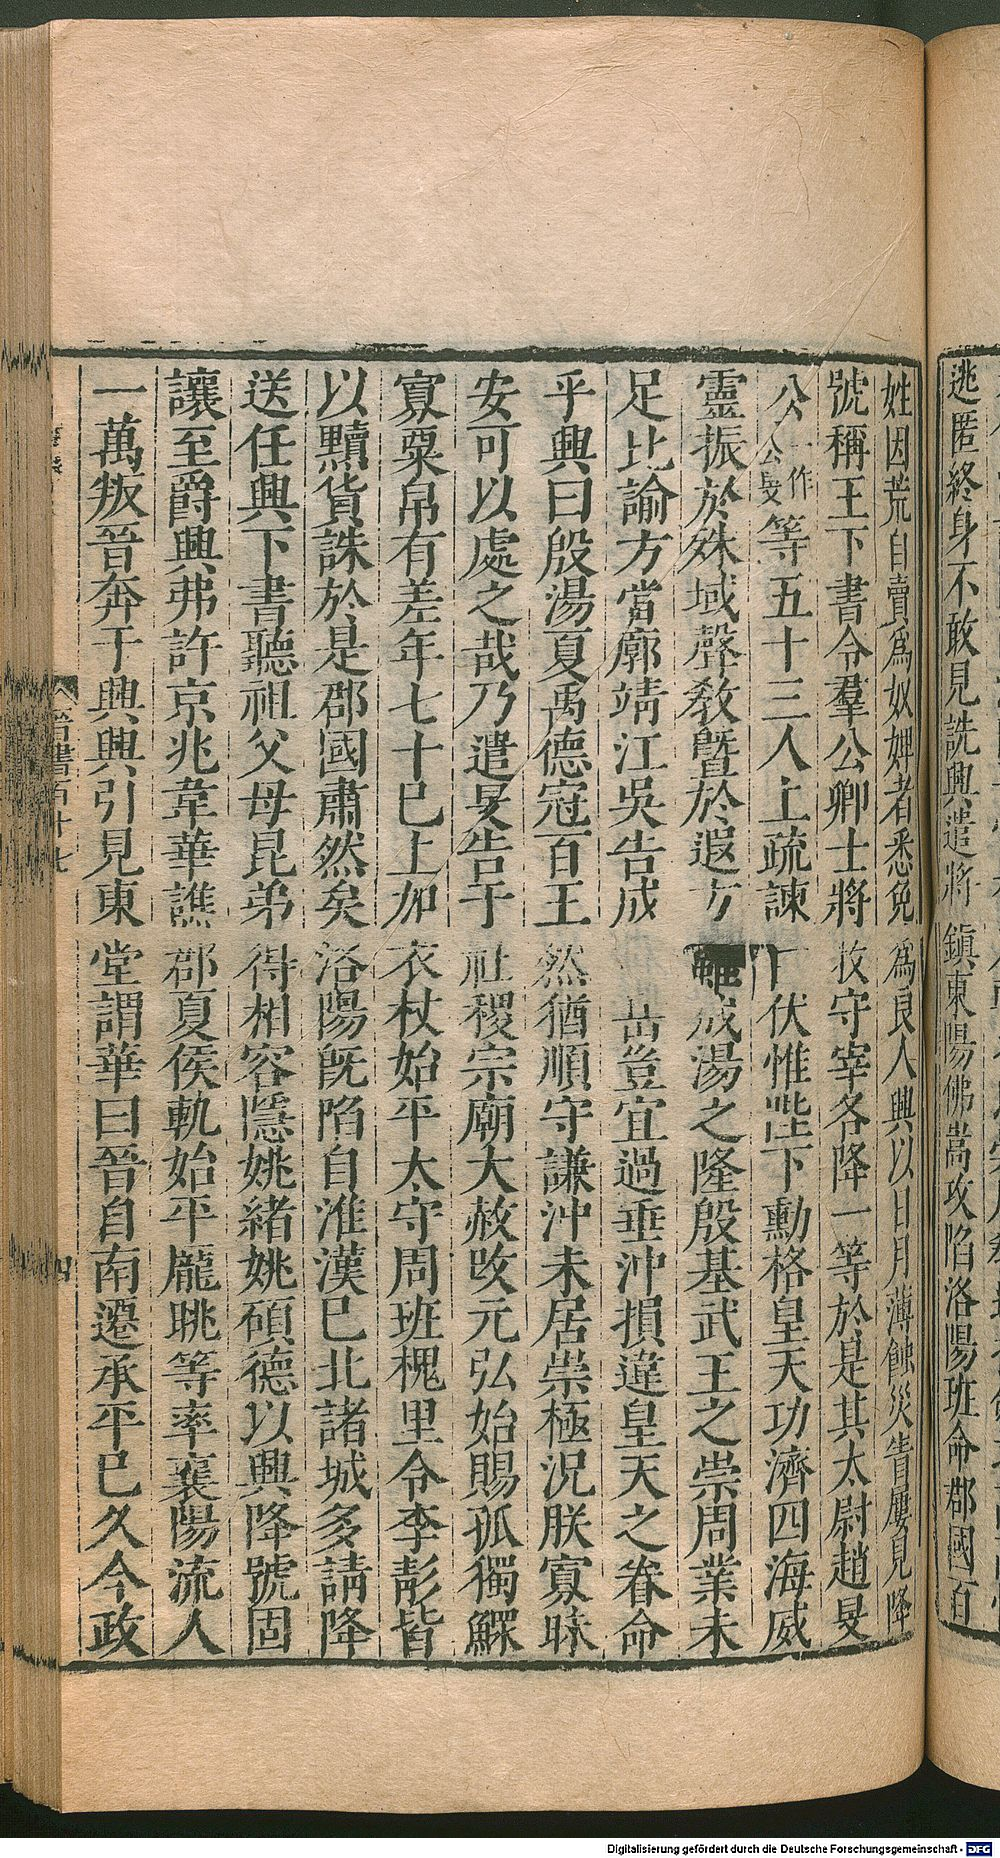 逃匿終身不敢見詵興遣將鎮東陽佛嵩攻陷洛陽班命郡國百
姓因荒自賣爲奴婢者悉免爲良人興以日月薄蝕災眚屢見降
號稱王下書令羣公卿士將牧守宰各降一等於是其太尉趙旻
公一作公旻等五十三人上疏諫曰伏惟陛下勳格皇天功濟四海威
靈振於殊域聲敎暨於遐方雖成湯之隆殷基武王之崇周業未
足比諭方當廓靖江吳告成岳豈宜過垂沖損違皇天之眷命
乎興曰殷湯夏禹德冠百王然猶順守謙沖未居崇極況朕寡昧
安可以處之哉乃遣旻告于社稷宗廟大赦改元弘始賜孤獨鰥
寡粟帛有差年七十已上加衣杖始平太守周班槐里令李彭皆
以黷貨誅於是郡國肅然矣洛陽旣陷自淮漢已北諸城多請降
送任興下書聽祖父母昆弟得相容隱姚緒姚碩德以興降號固
讓王爵興弗許京兆韋華譙郡夏侯軌始平龐眺等率襄陽流人
一萬叛晉奔于興興引見東堂謂華曰晉自南遷承平已久今政
晉書百十七
四
Digitalisierung gefördert durch die Deutsche Forschungsgemeinschaft - DFG